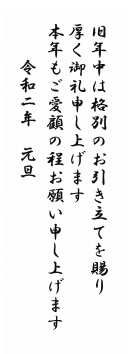 旧年中は格別のお引き立てを賜り
厚く御礼申し上げます
本年もご愛顧の程お願い申し上げます
令和二年　元旦